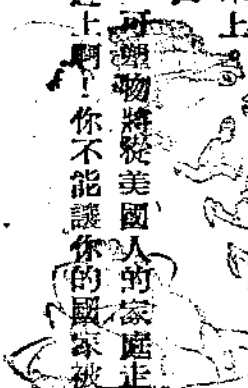 上
可塑物將從美國人的家庭走
上啊！你不能讓你的國家被